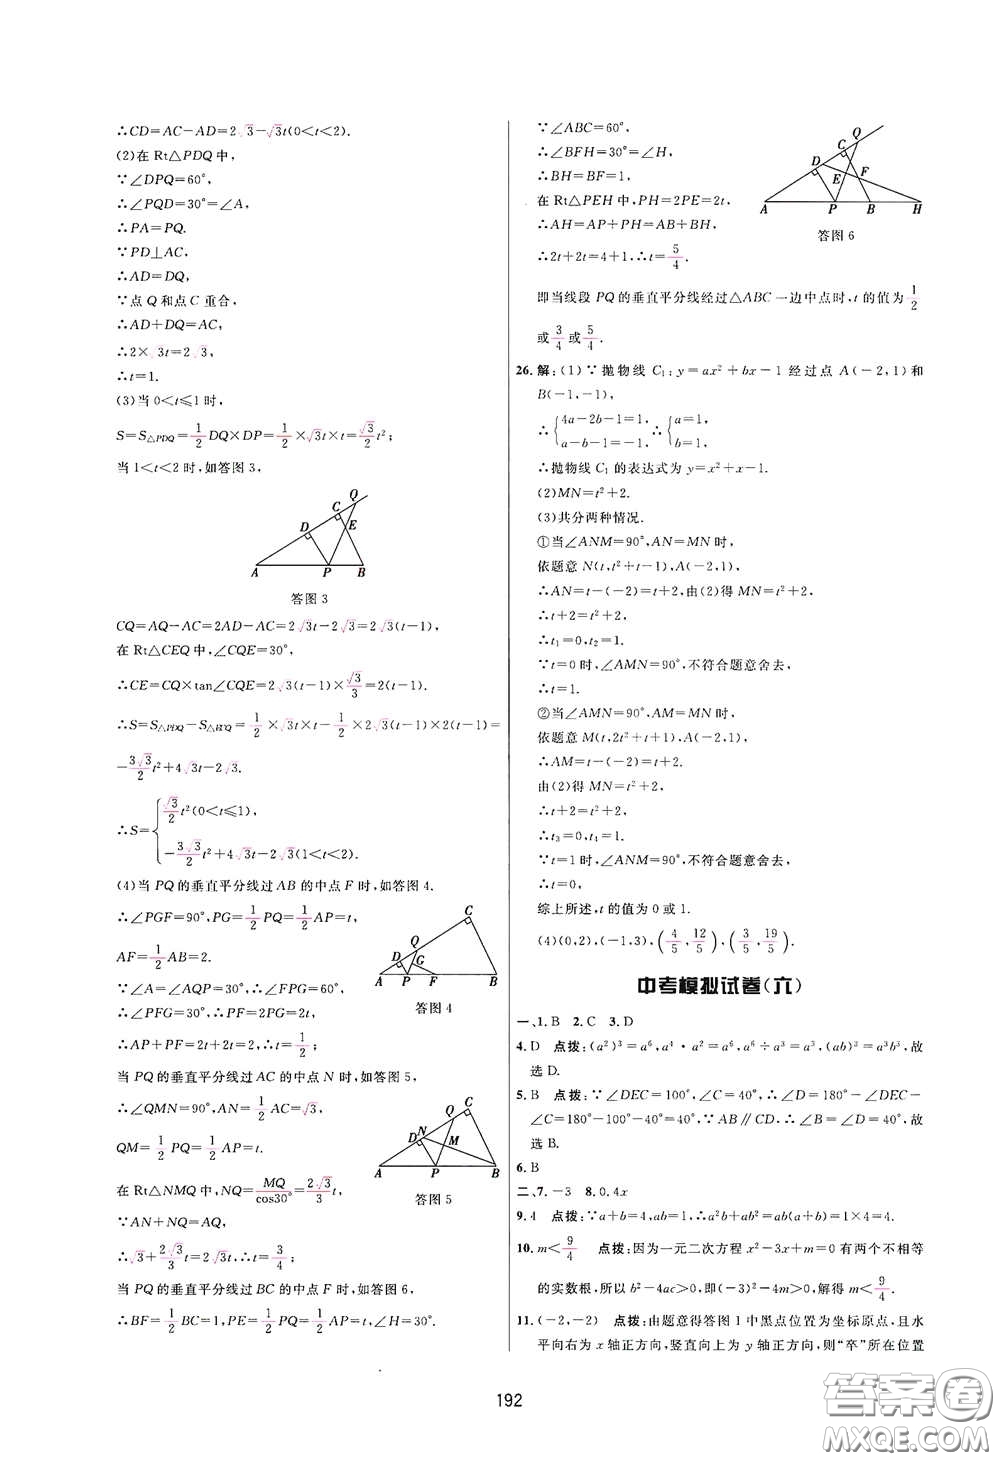 ∴CD=AC-AD=2√3-√3t(0<t<2).
(2)在 Rt△PDQ 中,
∵∠DPQ=60°,
∴∠PQD=30°=∠A,
∴PA=PQ.
∵PD⊥AC,
∴AD=DQ,
∵点 Q 和点 C 重合,
∴AD+DQ=AC,
∴2×√3t=2√3,
∴t=1.
(3)当 0<t≤1 时,
S=S△PDQ=1/2 DQ×DP=1/2×√3t×t=√3/2 t²;
当 1<t<2 时,如答图 3,
A P B D C Q E
答图 3
CQ=AQ-AC=2AD-AC=2√3t-2√3=2√3(t-1),
在 Rt△CEQ 中,∠CQE=30°,
∴CE=CQ×tan∠CQE=2√3(t-1)×√3/3=2(t-1).
∴S=S△PDQ-S△ECQ=1/2×√3t×t-1/2×2√3(t-1)×2(t-1)=
-3√3/2 t²+4√3t-2√3.
∴S={√3/2 t²(0<t≤1),
-3√3/2 t²+4√3t-2√3(1<t<2).
(4)当 PQ 的垂直平分线过 AB 的中点 F 时,如答图 4.
∴∠PGF=90°,PG=1/2 PQ=1/2 AP=t,
AF=1/2 AB=2.
∵∠A=∠AQP=30°,∴∠FPG=60°,
∴∠PFG=30°,∴PF=2PG=2t,
A P F B D Q G C
答图 4
∴AP+PF=2t+2t=2,∴t=1/2;
当 PQ 的垂直平分线过 AC 的中点 N 时,如答图 5,
∴∠QMN=90°,AN=1/2 AC=√3,
QM=1/2 PQ=1/2 AP=t.
在 Rt△NMQ 中,NQ=MQ/cos30°=2√3/3 t,
A P B D N Q C M
答图 5
∵AN+NQ=AQ,
∴√3+2√3/3 t=2√3t,∴t=3/4;
当 PQ 的垂直平分线过 BC 的中点 F 时,如答图 6,
∴BF=1/2 BC=1,PE=1/2 PQ=1/2 AP=t,∠H=30°.
∵∠ABC=60°,
∴∠BFH=30°=∠H,
∴BH=BF=1,
在 Rt△PEH 中,PH=2PE=2t,
∴AH=AP+PH=AB+BH,
∴2t+2t=4+1,∴t=5/4.
A P B H D C Q E F
答图 6
即当线段 PQ 的垂直平分线经过△ABC 一边中点时,t 的值为 1/2
或 3/4 或 5/4.
26.解:(1)∵抛物线 C₁:y=ax²+bx-1 经过点 A(-2,1)和
B(-1,-1),
∴{4a-2b-1=1, a-b-1=-1, ∴{a=1, b=1,
∴抛物线 C₁ 的表达式为 y=x²+x-1.
(2)MN=t²+2.
(3)共分两种情况.
①当∠ANM=90°,AN=MN 时,
依题意 N(t,t²+t-1),A(-2,1),
∴AN=t-(-2)=t+2,由(2)得 MN=t²+2,
∴t+2=t²+2,
∴t₁=0,t₂=1.
∵t=0 时,∠AMN=90°,不符合题意舍去,
∴t=1.
②当∠AMN=90°,AM=MN 时,
依题意 M(t,2t²+t+1),A(-2,1),
∴AM=t-(-2)=t+2.
由(2)得 MN=t²+2,
∴t+2=t²+2,
∴t₃=0,t₄=1.
∵t=1 时,∠ANM=90°,不符合题意舍去,
∴t=0,
综上所述,t 的值为 0 或 1.
(4)(0,2),(-1,3),(4/5,12/5),(3/5,19/5).
中考模拟试卷(六)
一、1.B 2.C 3.D
4.D 点拨:(a²)³=a⁶,a⁴·a²=a⁶,a⁶÷a³=a³,(ab)³=a³b³,故
选 D.
5.B 点拨:∵∠DEC=100°,∠C=40°,∴∠D=180°-∠DEC-
∠C=180°-100°-40°=40°,∵AB∥CD,∴∠B=∠D=40°,故
选 B.
6.B
二、7.-3 8.0.4x
9.4 点拨:∵a+b=4,ab=1,∴a²b+ab²=ab(a+b)=1×4=4.
10.m<9/4 点拨:因为一元二次方程 x²-3x+m=0 有两个不相等
的实数根,所以 b²-4ac>0,即(-3)²-4m>0,解得 m<9/4.
11.(-2,-2) 点拨:由题意得答图 1 中黑点位置为坐标原点,且水
平向右为 x 轴正方向,竖直向上为 y 轴正方向,则“卒”所在位置
192
答案圈
MXQE.COM